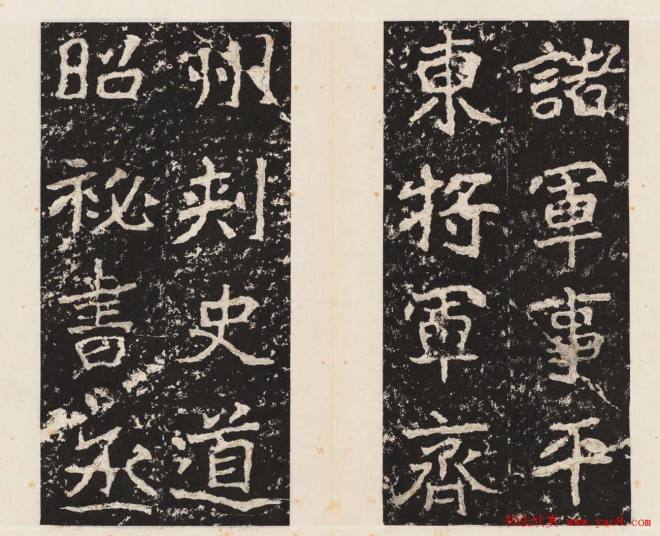 諸軍事平
東將軍齊
州刾史道
昭祕書丞
书法欣赏 www.yac8.com